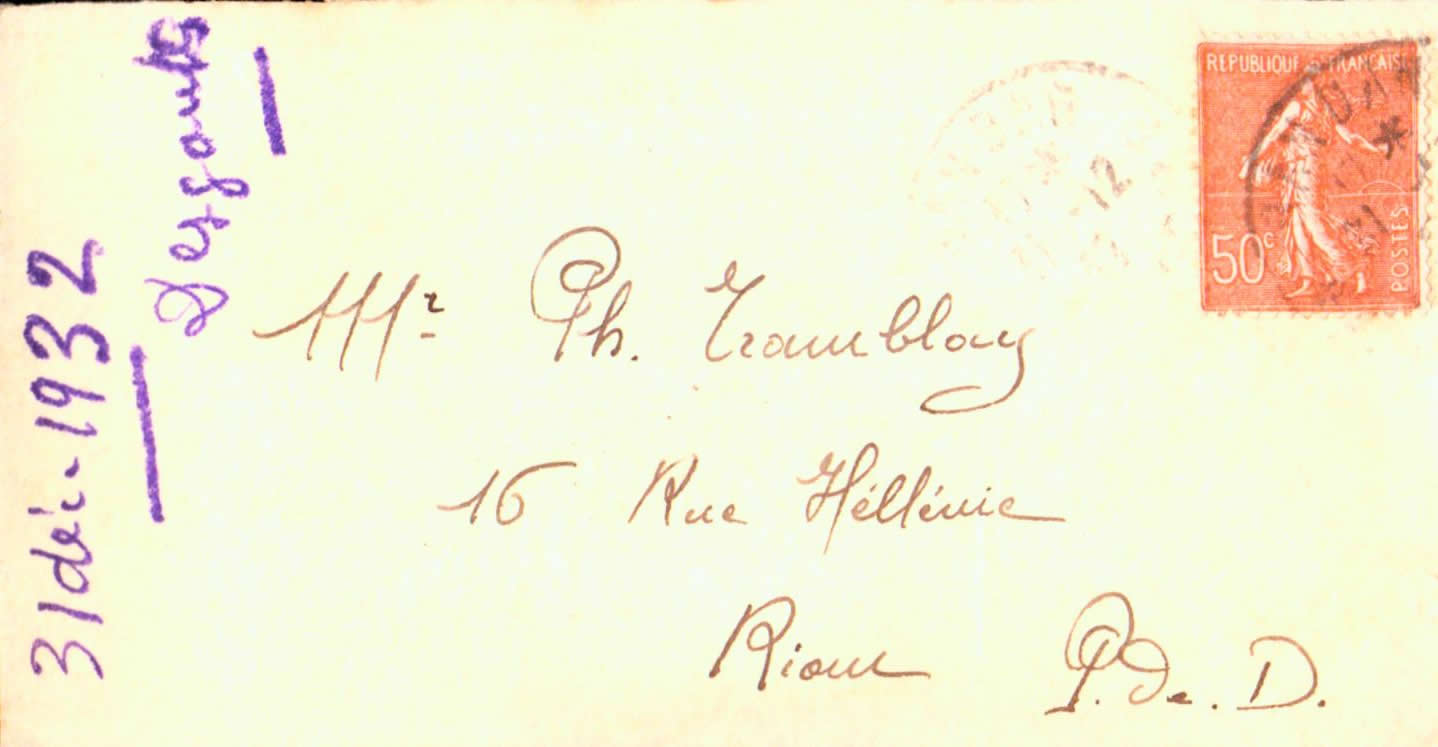 31 déc. 1932
REPUBLIQUE FRANÇAISE
50c
POSTES
12
Mr Ph. Tramblay
16 Rue Héllénie
Riom P. de. D.